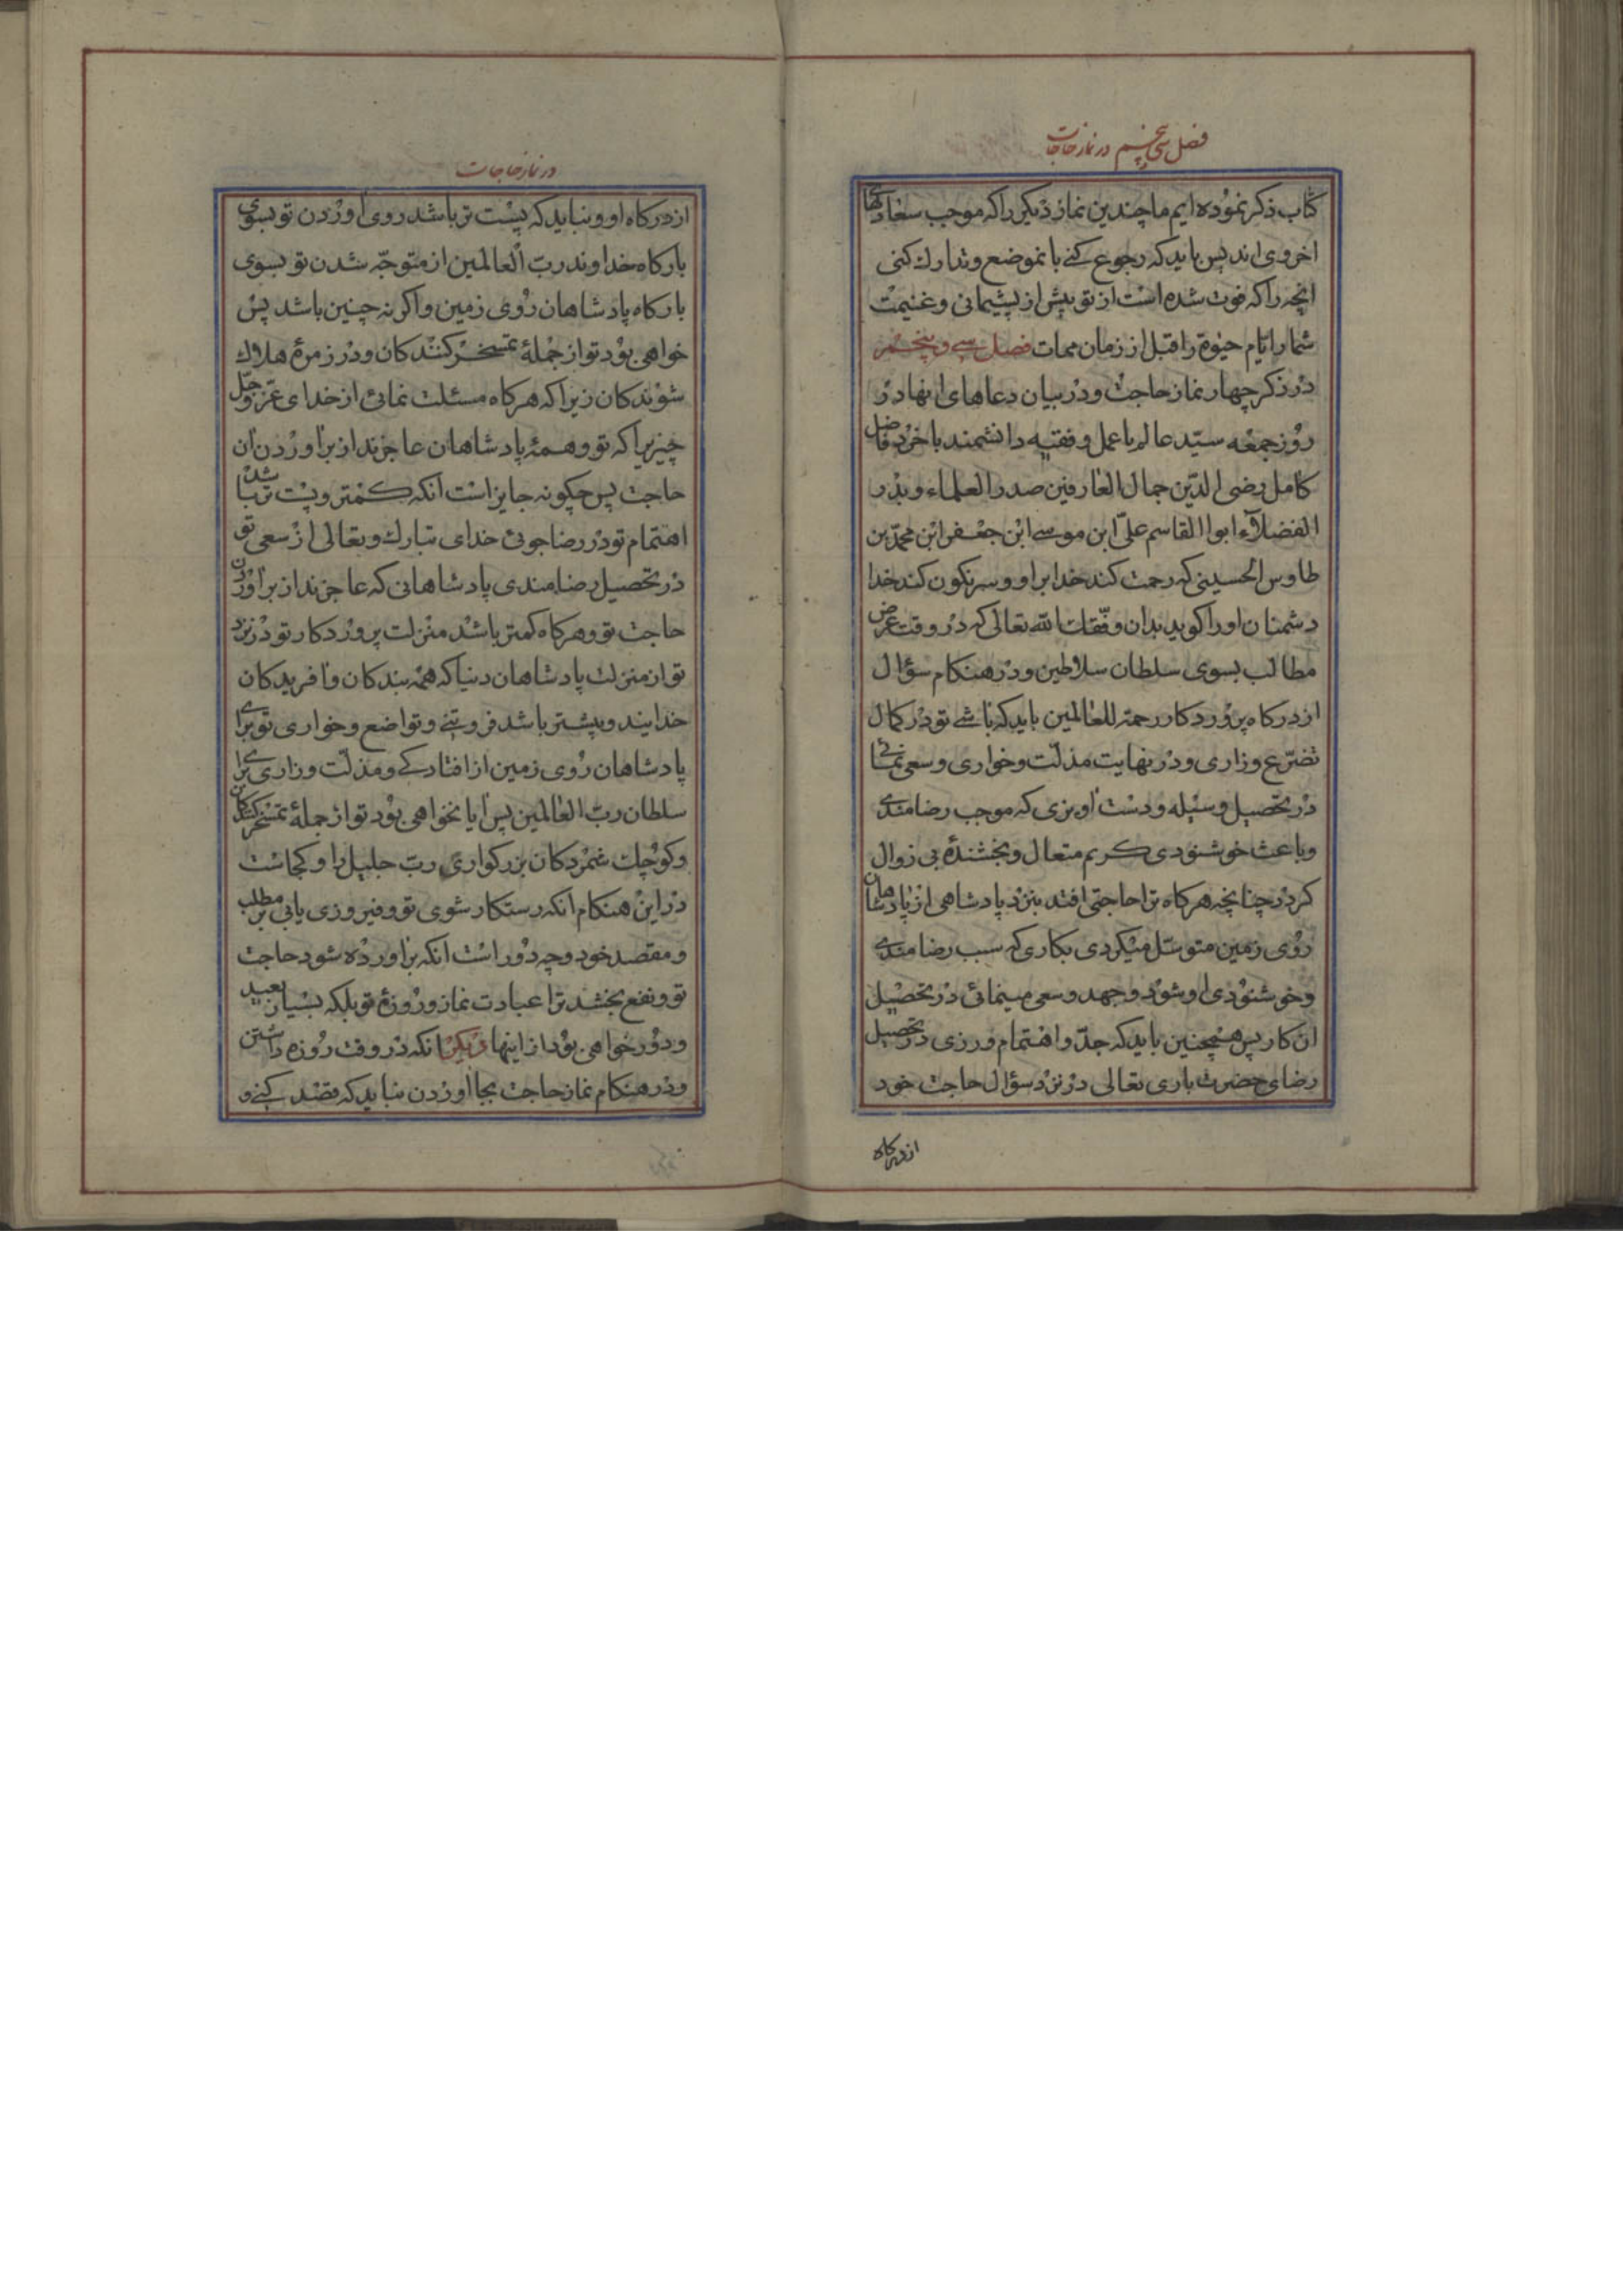 فصل سی و پنجم در نماز حاجات
کتاب ذکر نموده ایم ما چندین نماز دیکر را که موجب سعادتهای
اخروی اند پس باید که رجوع کنے بانموضع و تدارك کنی
انچه را که فوت شده است از تو پیش از پشیمانی و غنیمت
شمار ایام حیوة را قبل از زمان ممات فصل سے و پنجم
در ذکر چهار نماز حاجت و در بیان دعاهای انها در
روز جمعه سید عالم با عمل و فقیه دانشمند با خرد فاضل
کامل رضی الدین جمال العارفین صدر العلماء و بدر
الفضلاء ابوا القاسم علی ابن موسے ابن جعفر ابن محمد بن
طاوس الحسینی که رحمت کند خدا بر او و سرنکون کند خدا
دشمنان او را کوید بدان وفقك الله تعالی که در وقت عرض
مطالب بسوی سلطان سلاطین و در هنکام سؤال
از درکاه پروردکار رحمة للعالمین باید که باشے تو در کمال
تضرع و زاری و در نهایت مذلت و خواری و سعی نمائے
در تحصیل وسیله و دست اویزی که موجب رضامندے
و باعث خوشنودی کریم متعال و بخشندهٔ بی زوال
کردد چنانچه هرکاه ترا حاجتی افتد بنزد پادشاهی از پادشاهان
روی زمین متوسل میکردی بکاری که سبب رضامندے
و خوشنودی او شود و جهد و سعی مینمائی در تحصیل
ان کار پس همچنین باید که جد و اهتمام ورزی در تحصیل
رضای حضرت باری تعالی در نزد سؤال حاجت خود
از درکاه
در نماز حاجات
از درکاه او و نباید که پست تر باشد روی اوردن تو بسوی
بارکاه خداوند رب العالمین از متوجه شدن تو بسوی
بارکاه پادشاهان روی زمین و اکر نه چنین باشد پس
خواهی بود تو از جملهٔ تمسخر کنندکان و در زمرهٔ هلاك
شوندکان زیرا که هرکاه مسئلت نمائی از خدای عز و جل
چیزیرا که تو و همهٔ پادشاهان عاجزند از براوردن ان
حاجت پس چکونه جایز است انکه کمتر و پست تر باشد
اهتمام تو در رضاجوئی خدای تبارك و تعالی از سعی تو
در تحصیل رضامندی پادشاهانی که عاجزند از براوردن
حاجت تو و هرکاه کمتر باشد منزلت پروردکار تو در نزد
تو از منزلت پادشاهان دنیا که همه بندکان و افریدکان
خدایند و بیشتر باشد فروتنے و تواضع و خواری تو برای
پادشاهان روی زمین از افتادکے و مذلت و زاری برای
سلطان رب العالمین پس ایا نخواهی بود تو از جملهٔ تمسخر کنندکان
و کوچك شمردکان بزرکواری رب جلیل را و کجاست
در این هنکام انکه رستکار شوی تو و فیروزی یابی بر مطلب
و مقصد خود و چه دور است انکه براورده شود حاجت
تو و نفع بخشد ترا عبادت نماز و روزهٔ تو بلکه بسیار بعید
و دور خواهی بود از اینها دیکر انکه در وقت روزه داشتن
و در هنکام نماز حاجت بجا اوردن نباید که قصد کنے و